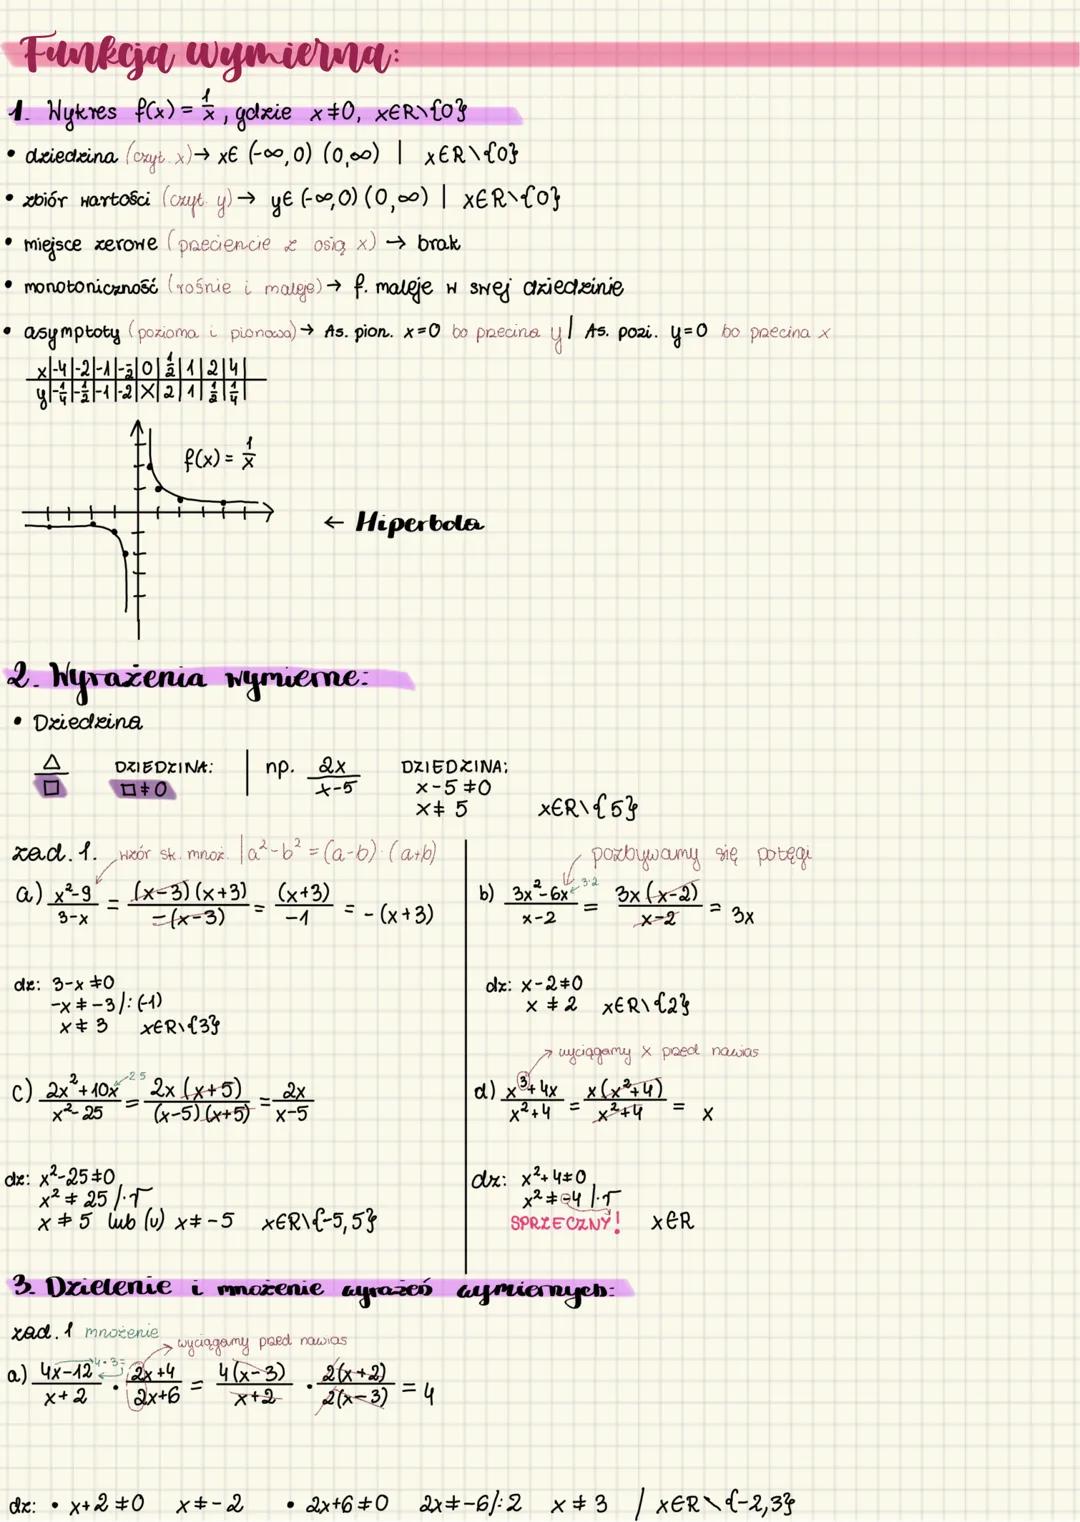 Funkcja wymierna:
1. Wykres f(x) = 1/x, gdzie x≠0, x∈R\{0}
• dziedzina (czyt. x) → x∈ (-∞,0) (0,∞) | x∈R\{0}
• zbiór wartości (czyt. y) → y∈ (-∞,0) (0,∞) | x∈R\{0}
• miejsce zerowe (przeciencie z osią x) → brak
• monotoniczność (rośnie i maleje) → f. maleje w swej dziedzinie
• asymptoty (pozioma i pionowa) → As. pion. x=0 bo przecina y | As. pozi. y=0 bo przecina x
x|-4|-2|-1|-1/2|0|1/2|1|2|4|
y|-1/4|-1/2|-1|-2|X|2|1|1/2|1/4|
f(x) = 1/x
← Hiperbola
2. Wyrażenia wymierne:
• Dziedzina
△/□ DZIEDZINA: □≠0 | np. 2x/(x-5) DZIEDZINA:
x-5≠0
x≠5 x∈R\{5}
zad. 1. wzór sk. mnoż. |a²-b² = (a-b)·(a+b)
a) (x²-9)/(3-x) = (x-3)(x+3)/-(x-3) = (x+3)/-1 = -(x+3)
dz: 3-x≠0
-x≠-3 /:(-1)
x≠3 x∈R\{3}
pozbywamy się potęgi
b) (3x²-6x)/(x-2) 3·2 = 3x(x-2)/(x-2) = 3x
dz: x-2≠0
x≠2 x∈R\{2}
c) (2x²+10x)/(x²-25) 2·5 = 2x(x+5)/(x-5)(x+5) = 2x/(x-5)
dz: x²-25≠0
x²≠25 /·√
x≠5 lub (v) x≠-5 x∈R\{-5,5}
→ wyciągamy x przed nawias
d) (x³+4x)/(x²+4) = x(x²+4)/(x²+4) = x
dz: x²+4≠0
x²≠-4 /·√
SPRZECZNY! x∈R
3. Dzielenie i mnożenie wyrażeń wymiernych:
zad. 1 mnożenie
→ wyciągamy przed nawias
a) (4x-12)/(x+2) 4·3= · (2x+4)/(2x+6) = 4(x-3)/(x+2) · 2(x+2)/2(x-3) = 4
dz: • x+2≠0 x≠-2 • 2x+6≠0 2x≠-6/:2 x≠3 / x∈R\{-2,3}